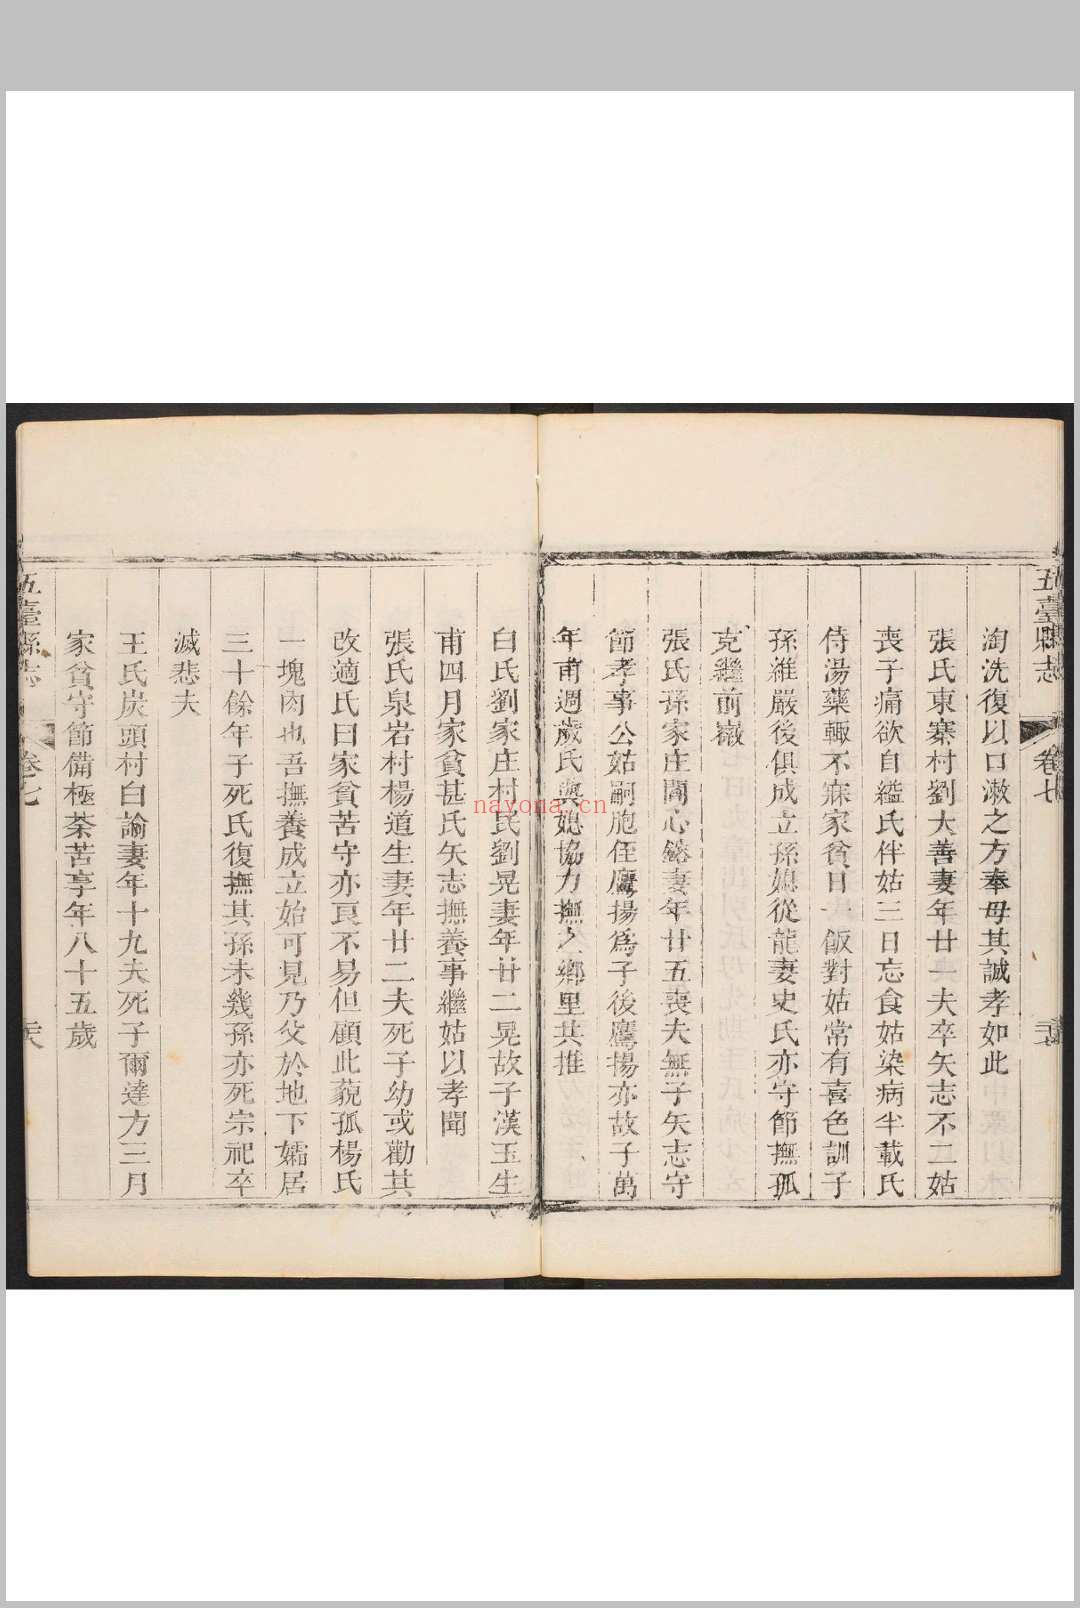 五臺縣志
卷七
淘洗復以口漱之方奉母其誠孝如此
張氏東寨村劉大善妻年廿一夫卒矢志不二姑
喪子痛欲自縊氏伴姑三日忘食姑染病半載氏
侍湯藥輙不寐家貧日一飯對姑常有喜色訓子
孫維嚴後俱成立孫媳從龍妻史氏亦守節撫孤
克繼前嶶
張氏孫家庄閻心鎔妻年廿五喪夫無子矢志守
節孝事公姑嗣胞侄鷹揚爲子後鷹揚亦故子萬
年甫週歲氏與媳協力撫之鄉里共推
白氏劉家庄村民劉晃妻年廿二晃故子漢玉生
甫四月家貧甚氏矢志撫養事繼姑以孝聞
張氏泉岩村楊道生妻年廿二夫死子幼或勸其
改適氏曰家貧苦守亦良不易但顧此藐孤楊氏
一塊肉也吾撫養成立始可見乃父於地下孀居
三十餘年子死氏復撫其孫未幾孫亦死宗祀卒
滅悲夫
王氏炭頭村白諭妻年十九夫死子爾達方三月
家貧守節備極荼苦享年八十五歲
五臺縣志
卷七
nayona.cn